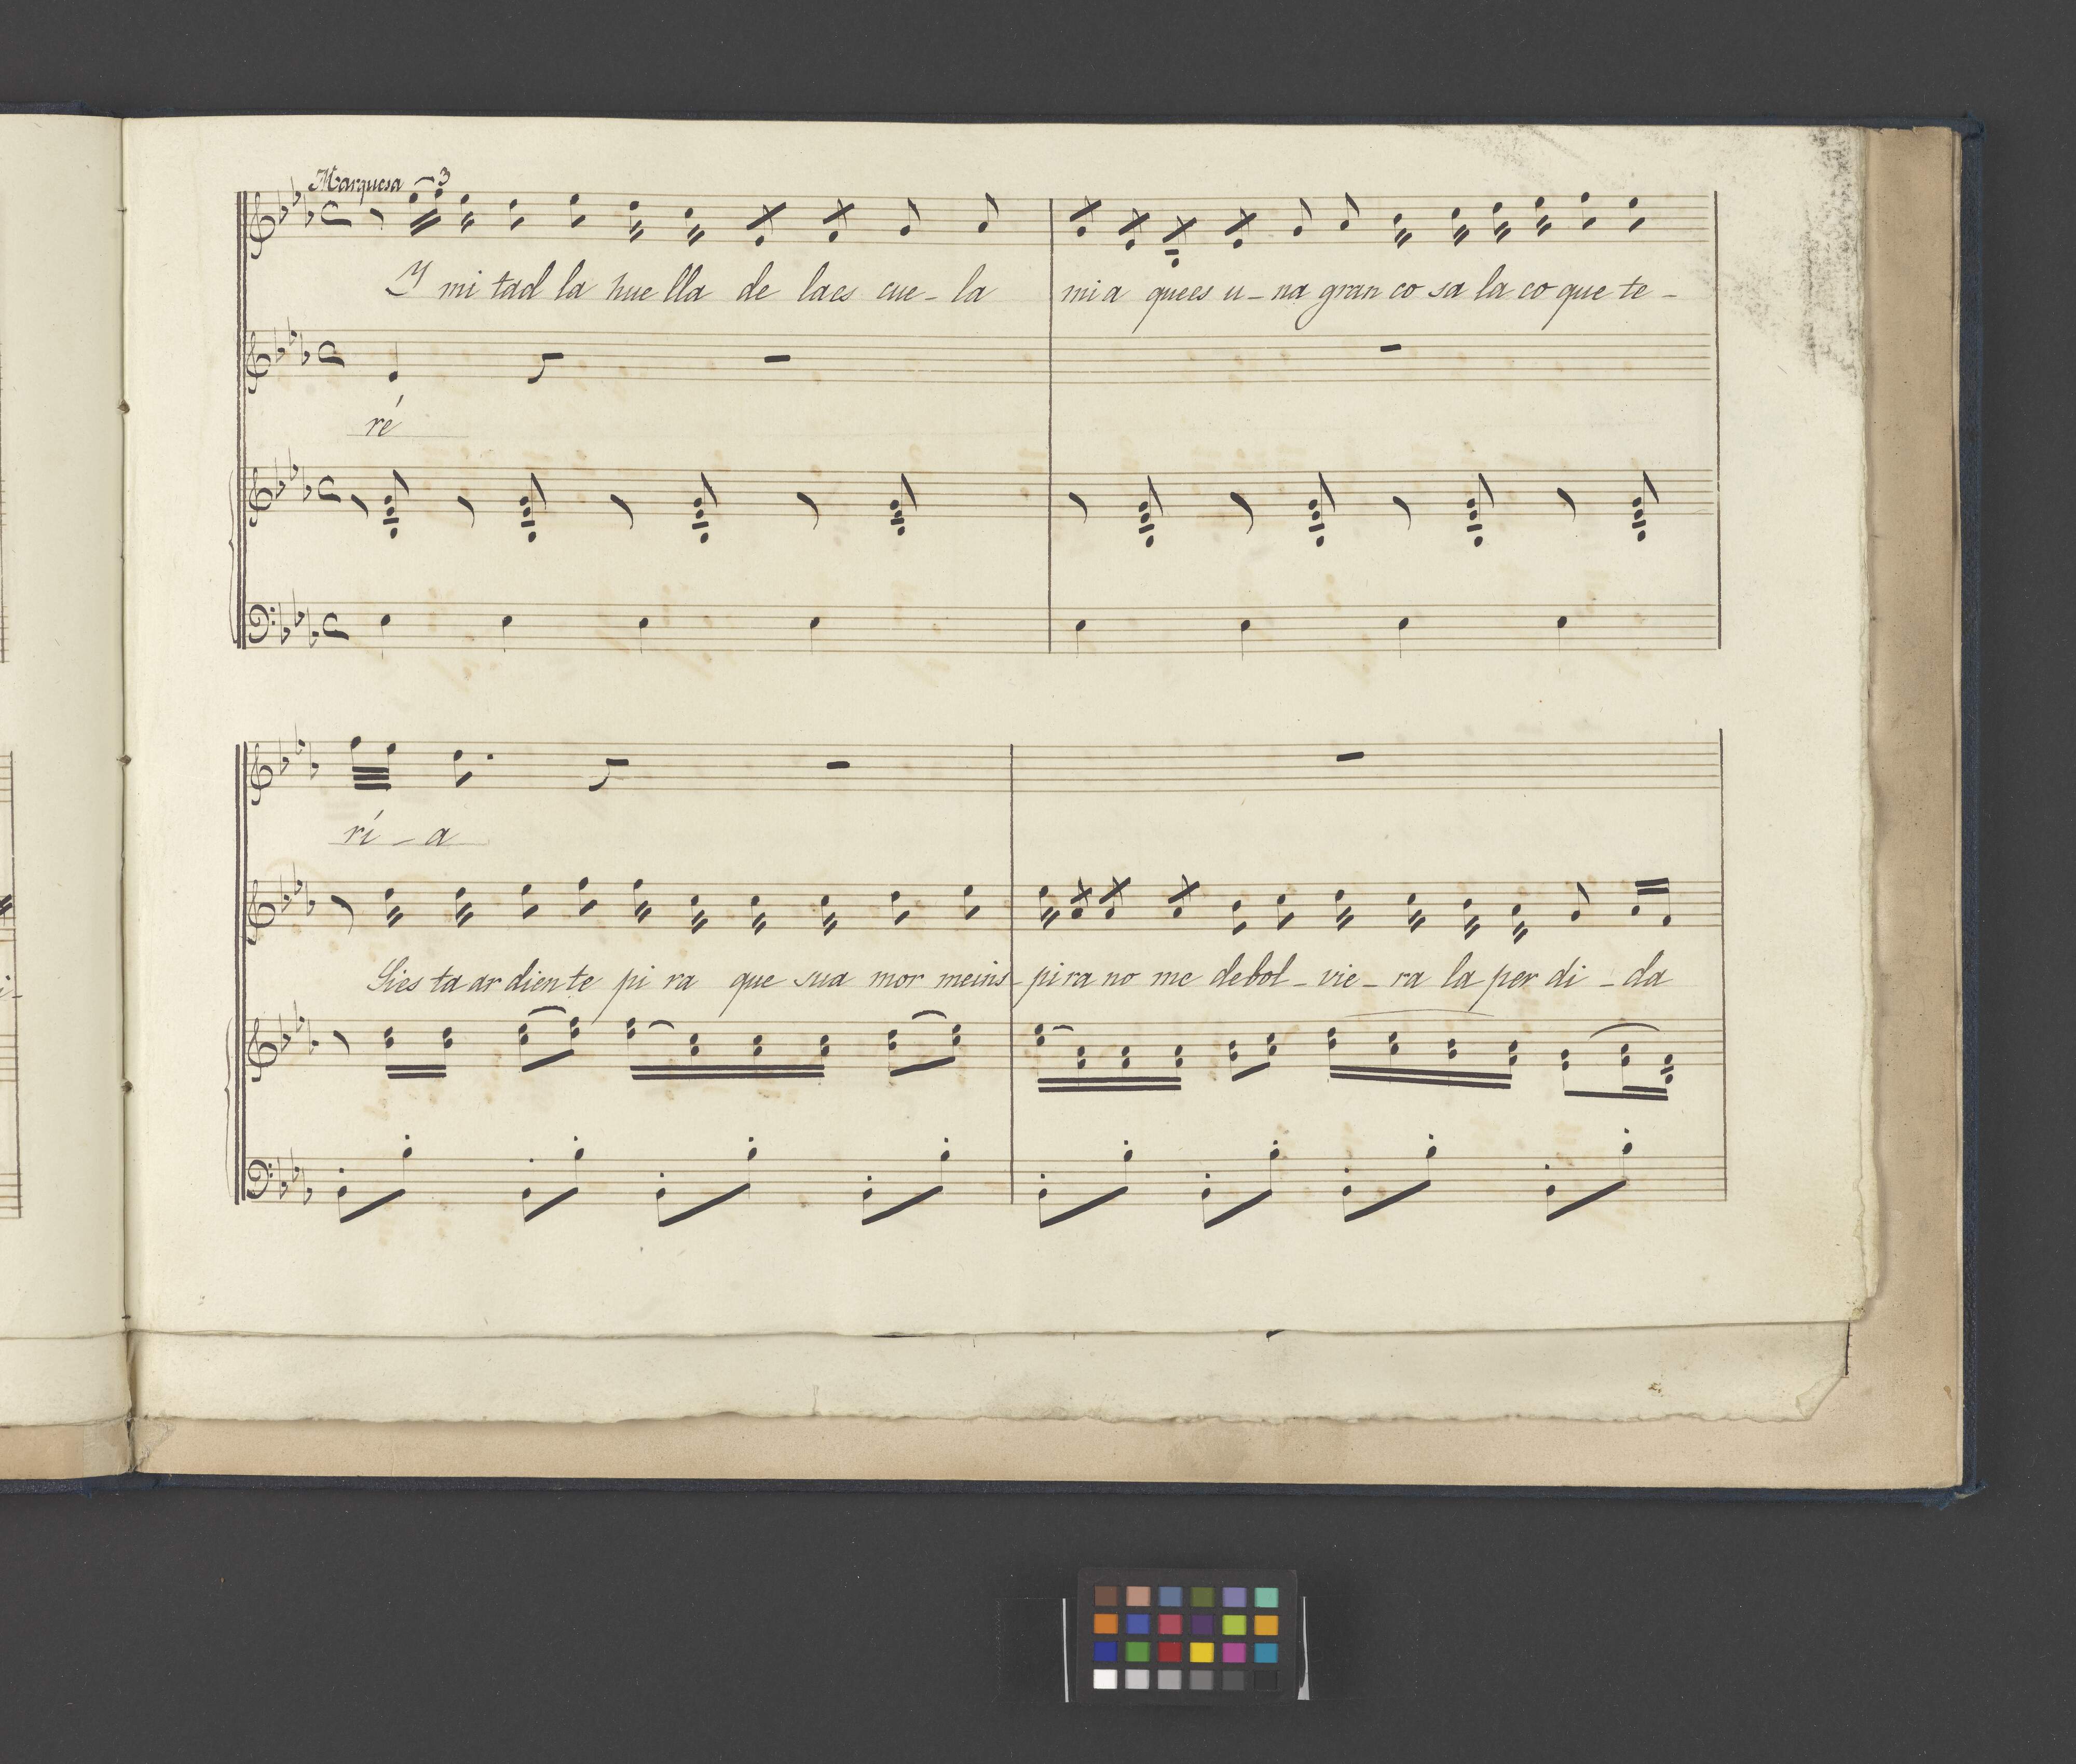 Marquesa 3
Y mi tad la hue lla de laes cue - la mi a quees u - na gran co sa la co que te -
ré
rí - a
Sies ta ar dien te pi ra que sua mor meins - pi ra no me debol - vie - ra la per di - da